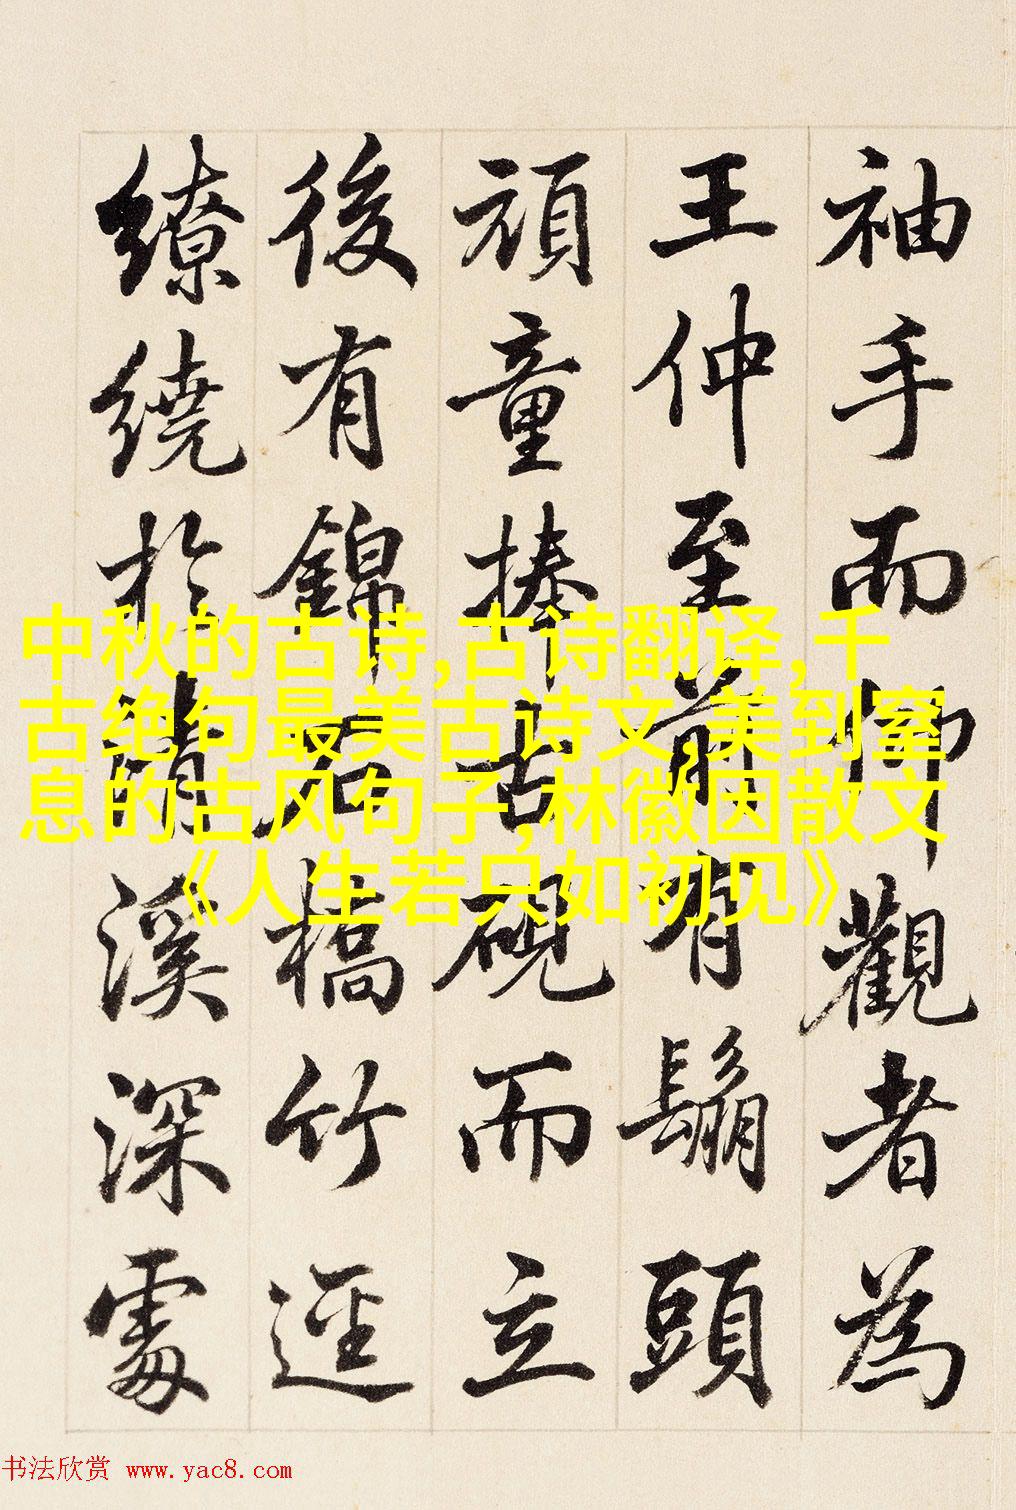 袖手而仰觀者為
王仲至前有鬅頭
頑童捧古硯而立
後有錦石橋竹逕
繚繞於清溪深處
中秋的古诗,古诗翻译,千
古绝句最美古诗文,美到窒
息的古风句子,林徽因散文
《人生若只如初见》
书法欣赏 www.yac8.com